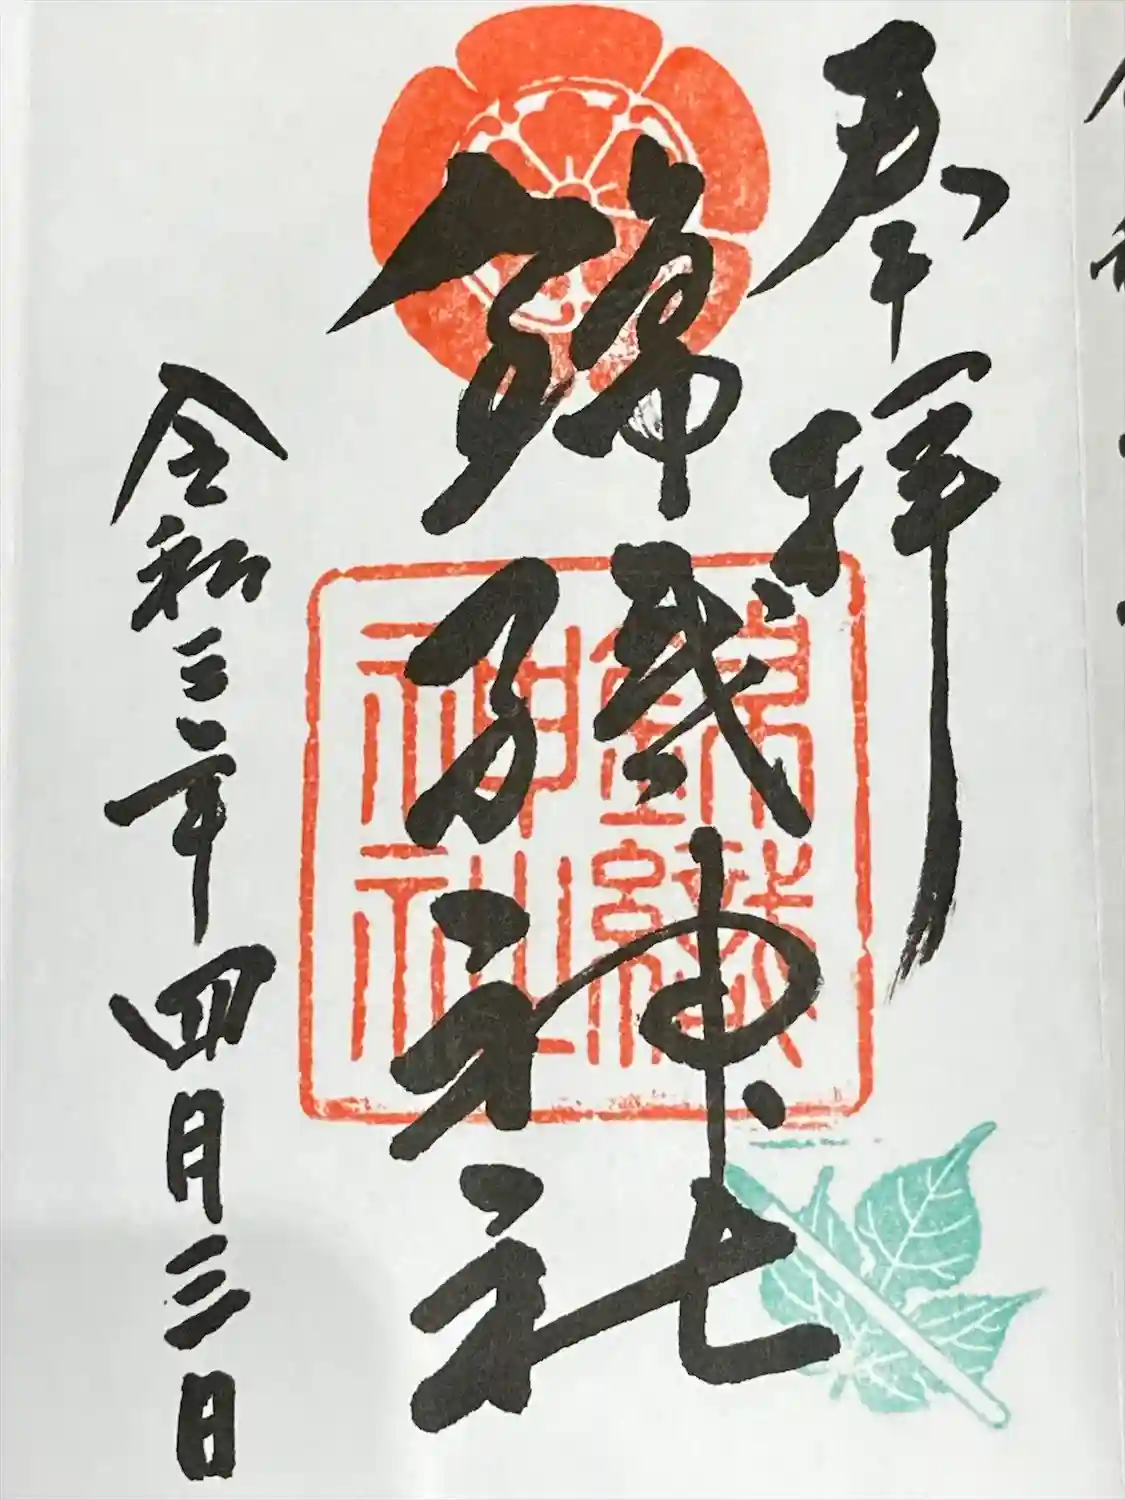 奉拝
錦織神社
錦織
神社
令和三年四月三日